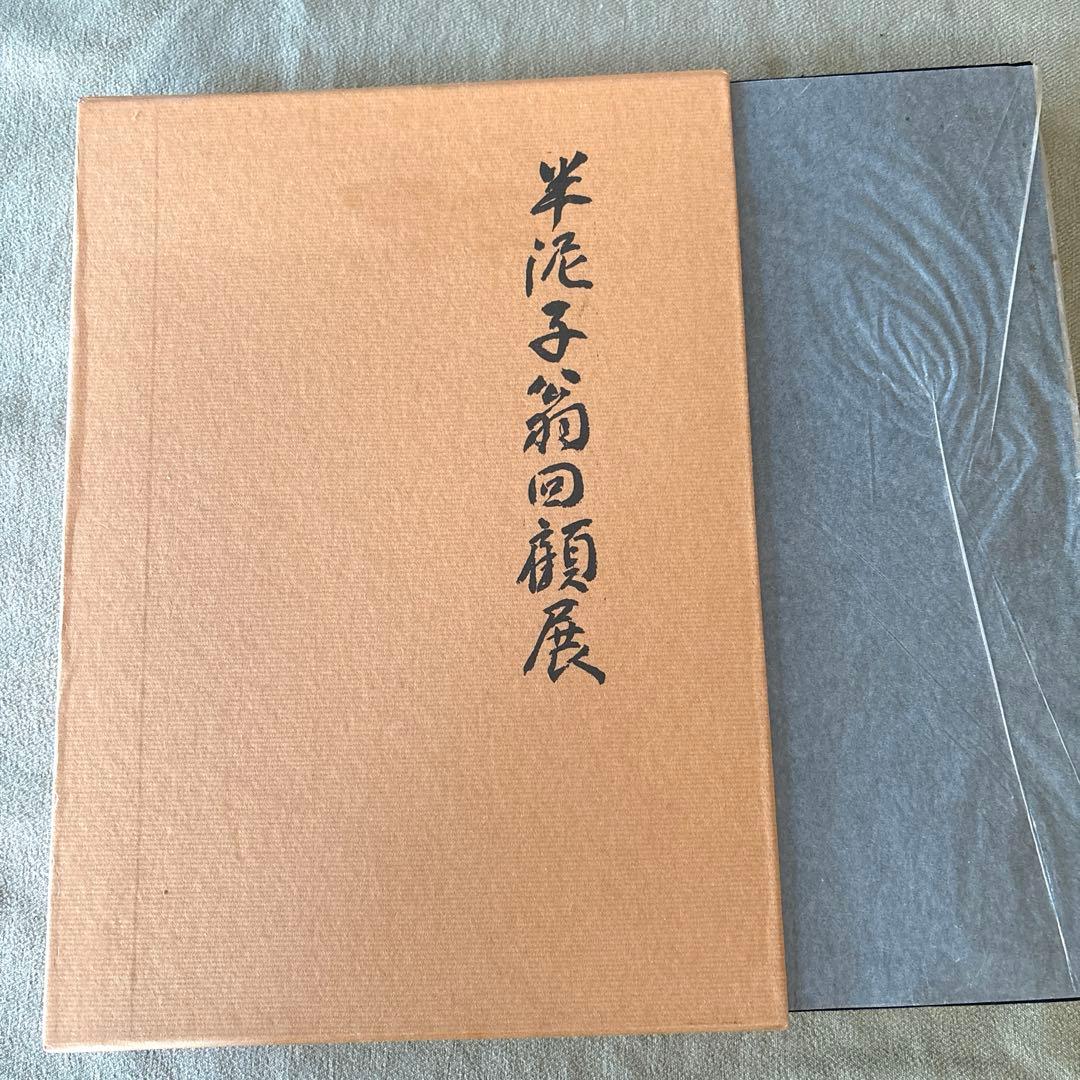 半泥子翁回顧展